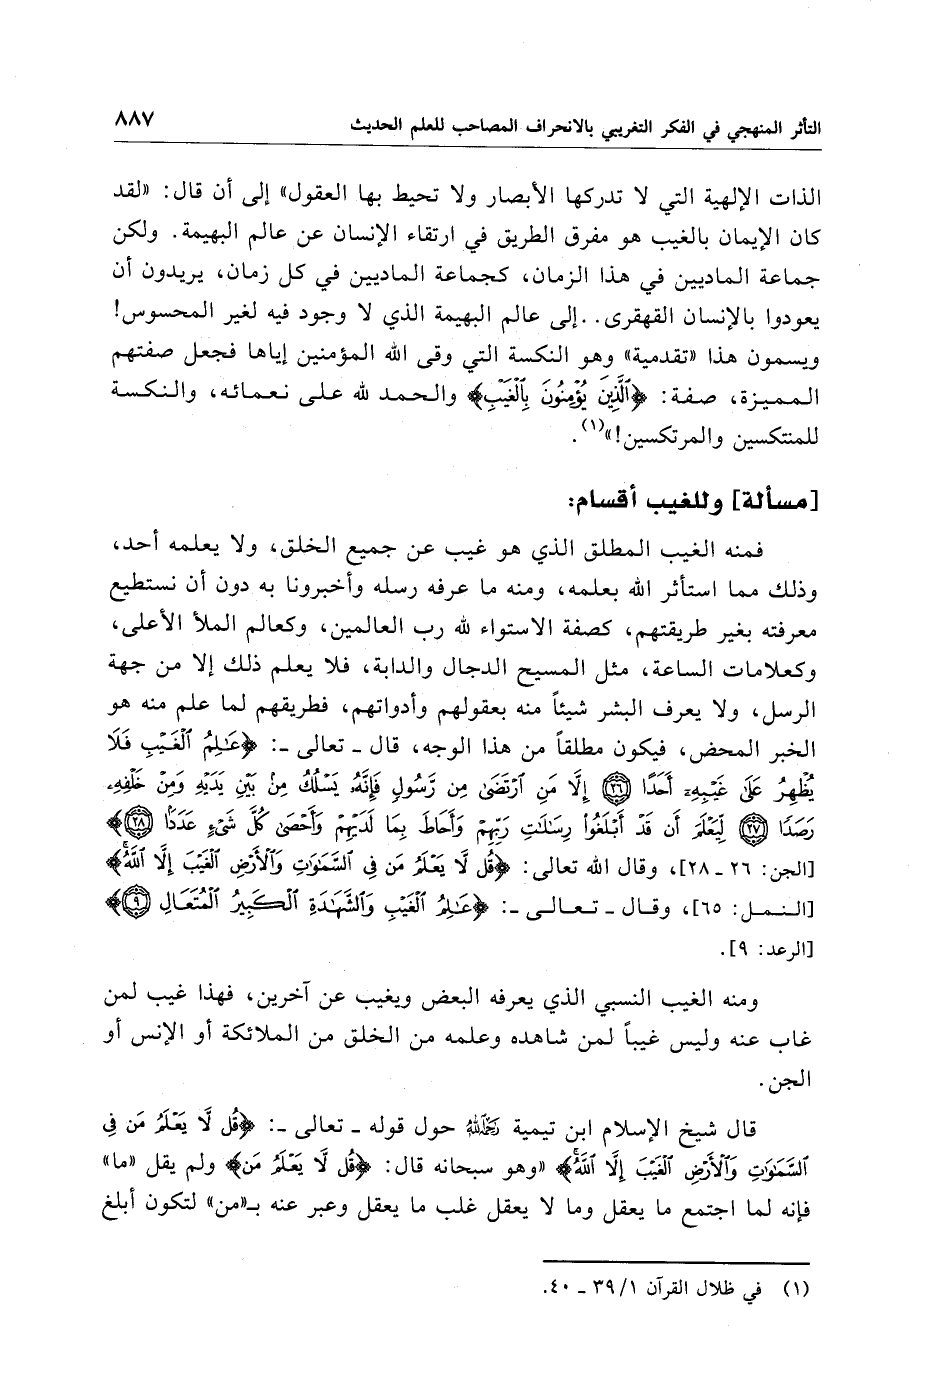 التأثر المنهجي في الفكر التغريبي بالانحراف المصاحب للعلم الحديث ٨٨٧
الذات الإلهية التي لا تدركها الأبصار ولا تحيط بها العقول» إلى أن قال: «لقد
كان الإيمان بالغيب هو مفرق الطريق في ارتقاء الإنسان عن عالم البهيمة. ولكن
جماعة الماديين في هذا الزمان، كجماعة الماديين في كل زمان، يريدون أن
يعودوا بالإنسان القهقرى..إلى عالم البهيمة الذي لا وجود فيه لغير المحسوس!
ويسمون هذا «تقدمية» وهو النكسة التي وقى الله المؤمنين إياها فجعل صفتهم
المميزة، صفة: ﴿ٱلَّذِينَ يُؤْمِنُونَ بِٱلْغَيْبِ﴾ والحمد لله على نعمائه، والنكسة
للمنتكسين والمرتكسين!»(١).
[مسألة] وللغيب أقسام:
فمنه الغيب المطلق الذي هو غيب عن جميع الخلق، ولا يعلمه أحد،
وذلك مما استأثر الله بعلمه، ومنه ما عرفه رسله وأخبرونا به دون أن نستطيع
معرفته بغير طريقتهم، كصفة الاستواء لله رب العالمين، وكعالم الملأ الأعلى،
وكعلامات الساعة، مثل المسيح الدجال والدابة، فلا يعلم ذلك إلا من جهة
الرسل، ولا يعرف البشر شيئاً منه بعقولهم وأدواتهم، فطريقهم لما علم منه هو
الخبر المحض، فيكون مطلقاً من هذا الوجه، قال ـ تعالى ـ: ﴿عَـٰلِمُ ٱلْغَيْبِ فَلَا
يُظْهِرُ عَلَىٰ غَيْبِهِۦٓ أَحَدًا ۝٢٦ إِلَّا مَنِ ٱرْتَضَىٰ مِن رَّسُولٍ فَإِنَّهُۥ يَسْلُكُ مِنۢ بَيْنِ يَدَيْهِ وَمِنْ خَلْفِهِۦ
رَصَدًا ۝٢٧ لِّيَعْلَمَ أَن قَدْ أَبْلَغُوا۟ رِسَـٰلَـٰتِ رَبِّهِمْ وَأَحَاطَ بِمَا لَدَيْهِمْ وَأَحْصَىٰ كُلَّ شَىْءٍ عَدَدًۢا ۝٢٨﴾
[الجن: ٢٦ ـ ٢٨]، وقال الله تعالى: ﴿قُل لَّا يَعْلَمُ مَن فِى ٱلسَّمَـٰوَٰتِ وَٱلْأَرْضِ ٱلْغَيْبَ إِلَّا ٱللَّهُ﴾
[النمل: ٦٥]، وقال ـ تعالى ـ: ﴿عَـٰلِمُ ٱلْغَيْبِ وَٱلشَّهَـٰدَةِ ٱلْكَبِيرُ ٱلْمُتَعَالِ ۝٩﴾
[الرعد: ٩].
ومنه الغيب النسبي الذي يعرفه البعض ويغيب عن آخرين، فهذا غيب لمن
غاب عنه وليس غيباً لمن شاهده وعلمه من الخلق من الملائكة أو الإنس أو
الجن.
قال شيخ الإسلام ابن تيمية رحمه الله حول قوله ـ تعالى ـ: ﴿قُل لَّا يَعْلَمُ مَن فِى
ٱلسَّمَـٰوَٰتِ وَٱلْأَرْضِ ٱلْغَيْبَ إِلَّا ٱللَّهُ﴾ «وهو سبحانه قال: ﴿قُل لَّا يَعْلَمُ مَن﴾ ولم يقل «ما»
فإنه لما اجتمع ما يعقل وما لا يعقل غلب ما يعقل وعبر عنه بـ«من» لتكون أبلغ
(١) في ظلال القرآن ٣٩/١ ـ ٤٠.